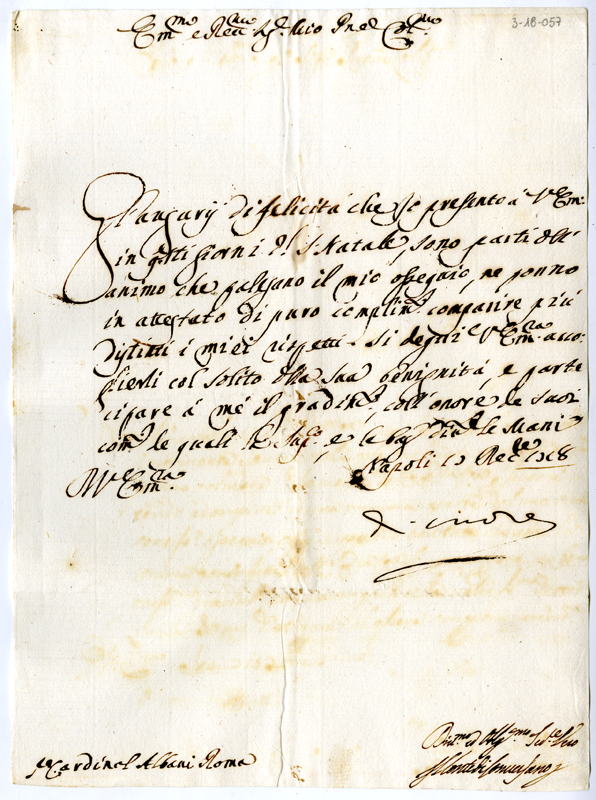 3-18-057
Em.mo e Rev.mo Sig.r mio P.ne Col.mo
Gl'augurij di felicità che Io presento a V.Em.
in q.sti giorni del S. Natale, sono parti dell'
animo che palesano il mio ossequio, ne ponno
in attestato di puro complim.to comparire più
distinti i miei rispetti. Si degni V.Em.za acco-
glierli col solito della sua benignità, e parte
cipare à me il gradim.to, coll'onore de suoi
com.di le quali e le b. le Mani
Napoli 17
Di V.Em.za
Cardinal Albani Roma
Ser.e Vero
Il Conte di Conversano